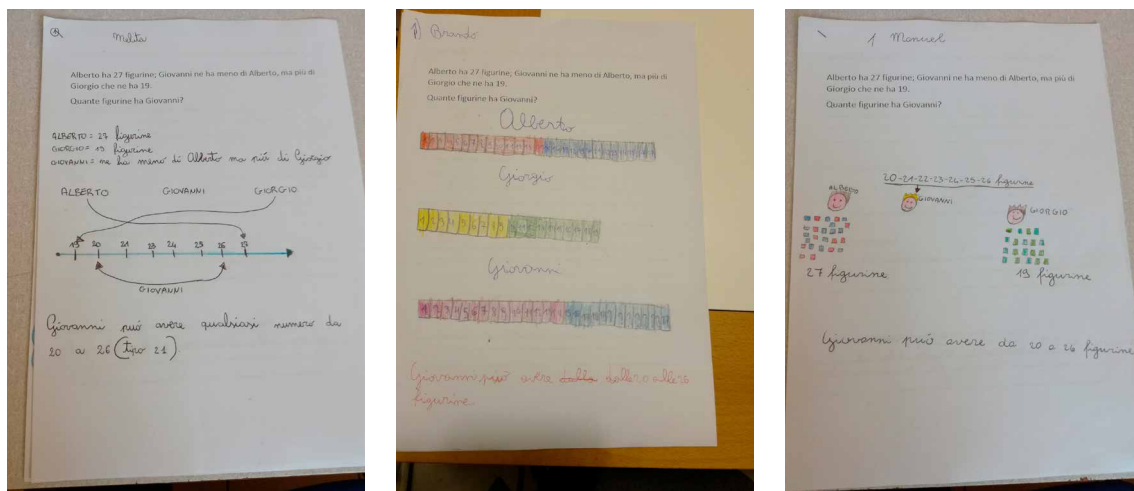 Melita
Alberto ha 27 figurine; Giovanni ne ha meno di Alberto, ma più di
Giorgio che ne ha 19.
Quante figurine ha Giovanni?
ALBERTO = 27 figurine
GIORGIO = 19 figurine
GIOVANNI = ne ha meno di Alberto ma più di Giorgio
ALBERTO GIOVANNI GIORGIO
19 20 21 23 24 25 26 27
GIOVANNI
Giovanni può avere qualsiasi numero da
20 a 26 (tipo 21)
1) Brando
Alberto ha 27 figurine; Giovanni ne ha meno di Alberto, ma più di
Giorgio che ne ha 19.
Quante figurine ha Giovanni?
Alberto
Giorgio
1 2 3 4 5 6 7 8 9
Giovanni
Giovanni può avere
figurine
1 Manuel
Alberto ha 27 figurine; Giovanni ne ha meno di Alberto, ma più di
Giorgio che ne ha 19.
Quante figurine ha Giovanni?
20-21-22-23-24-25-26 figurine
ALBERTO
GIOVANNI
GIORGIO
27 figurine
19 figurine
Giovanni può avere da 20 a 26 figurine